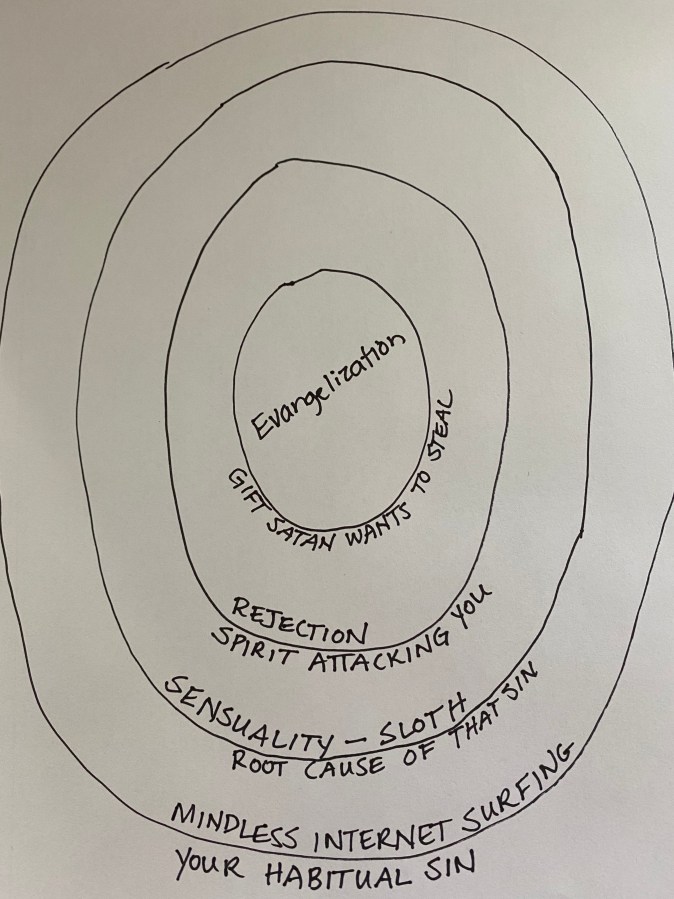 Evangelization
GIFT SATAN WANTS TO STEAL
REJECTION
SPIRIT ATTACKING YOU
SENSUALITY – SLOTH
ROOT CAUSE OF THAT SIN
MINDLESS INTERNET SURFING
YOUR HABITUAL SIN